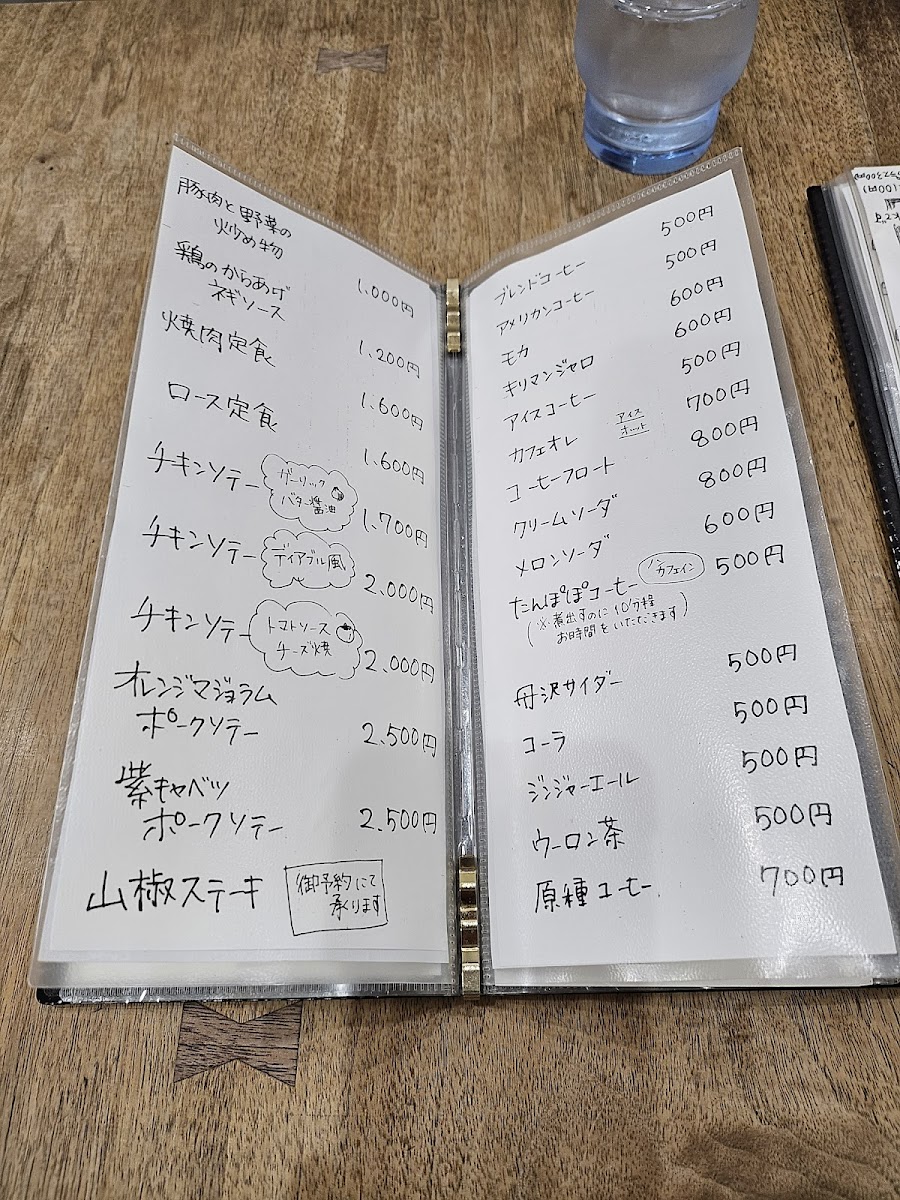 豚肉と野菜の
炒め物 1,000円
鶏のからあげ
ネギソース 1,200円
焼肉定食 1,600円
ロース定食 1,600円
チキンソテー ガーリック
バター醤油 1,700円
チキンソテー ディアブル風 2,000円
チキンソテー トマトソース
チーズ焼 2,000円
オレンジマジョラム
ポークソテー 2,500円
紫キャベツ
ポークソテー 2,500円
山椒ステーキ 御予約にて
承ります
ブレンドコーヒー 500円
アメリカンコーヒー 500円
モカ 600円
キリマンジャロ 600円
アイスコーヒー 500円
カフェオレ アイス
ホット 700円
コーヒーフロート 800円
クリームソーダ 800円
メロンソーダ 600円
たんぽぽコーヒー ノンカフェイン 500円
(※煮出すのに10分程
お時間をいただきます)
丹沢サイダー 500円
コーラ 500円
ジンジャーエール 500円
ウーロン茶 500円
原種コーヒー 700円